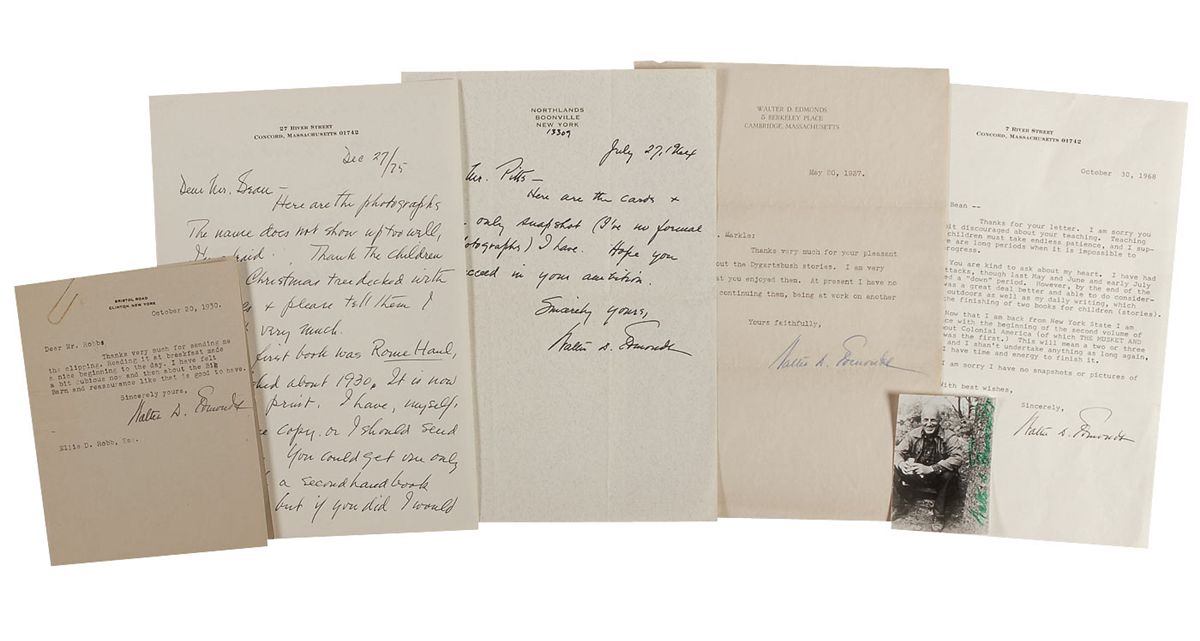 BRISTOL ROAD
CLINTON, NEW YORK
October 20, 1930.
Dear Mr. Robb:
Thanks very much for sending me
the clipping. Reading it at breakfast made
a nice beginning to the day. I have felt
a bit dubious now and then about the Big
Barn and reassurance like that is good to have.
Sincerely yours,
Walter D. Edmonds
Ellis D. Robb, Esq.
27 RIVER STREET
CONCORD, MASSACHUSETTS 01742
Dec 27/75
Dear Mr. Bean –
Here are the photographs
The name does not show up too well,
I'm afraid. Thank the children
Christmas tree decked with
& please tell them I
very much.
first book was Rome Haul,
about 1930. It is now
print. I have, myself,
copy. or I should send
You could get one only
a secondhand book
but if you did I would
NORTHLANDS
BOONVILLE
NEW YORK
13309
July 27, 1964
Mr. Pitts –
Here are the cards &
only snapshot (I've no formal
photographs) I have. Hope you
succeed in your ambition.
Sincerely yours,
Walter D. Edmonds
WALTER D. EDMONDS
5 BERKELEY PLACE
CAMBRIDGE, MASSACHUSETTS
May 20, 1937.
Markle:
Thanks very much for your pleasant
out the Dygartsbush stories. I am very
at you enjoyed them. At present I have no
continuing them, being at work on another
Yours faithfully,
Walter D. Edmonds
7 RIVER STREET
CONCORD, MASSACHUSETTS 01742
October 30, 1968
Bean --
Thanks for your letter. I am sorry you
it discouraged about your teaching. Teaching
children must take endless patience, and I sup-
e are long periods when it is impossible to
rogress.
You are kind to ask about my heart. I have had
ttacks, though last May and June and early July
ed a "down" period. However, by the end of the
was a great deal better and able to do consider-
outdoors as well as my daily writing, which
the finishing of two books for children (stories).
Now that I am back from New York State I am
ce with the beginning of the second volume of
out Colonial America (of which THE MUSKET AND
was the first.) This will mean a two or three
and I shan't undertake anything as long again,
I have time and energy to finish it.
I am sorry I have no snapshots or pictures of
With best wishes,
Sincerely,
Walter D. Edmonds
Walter D. Edmonds